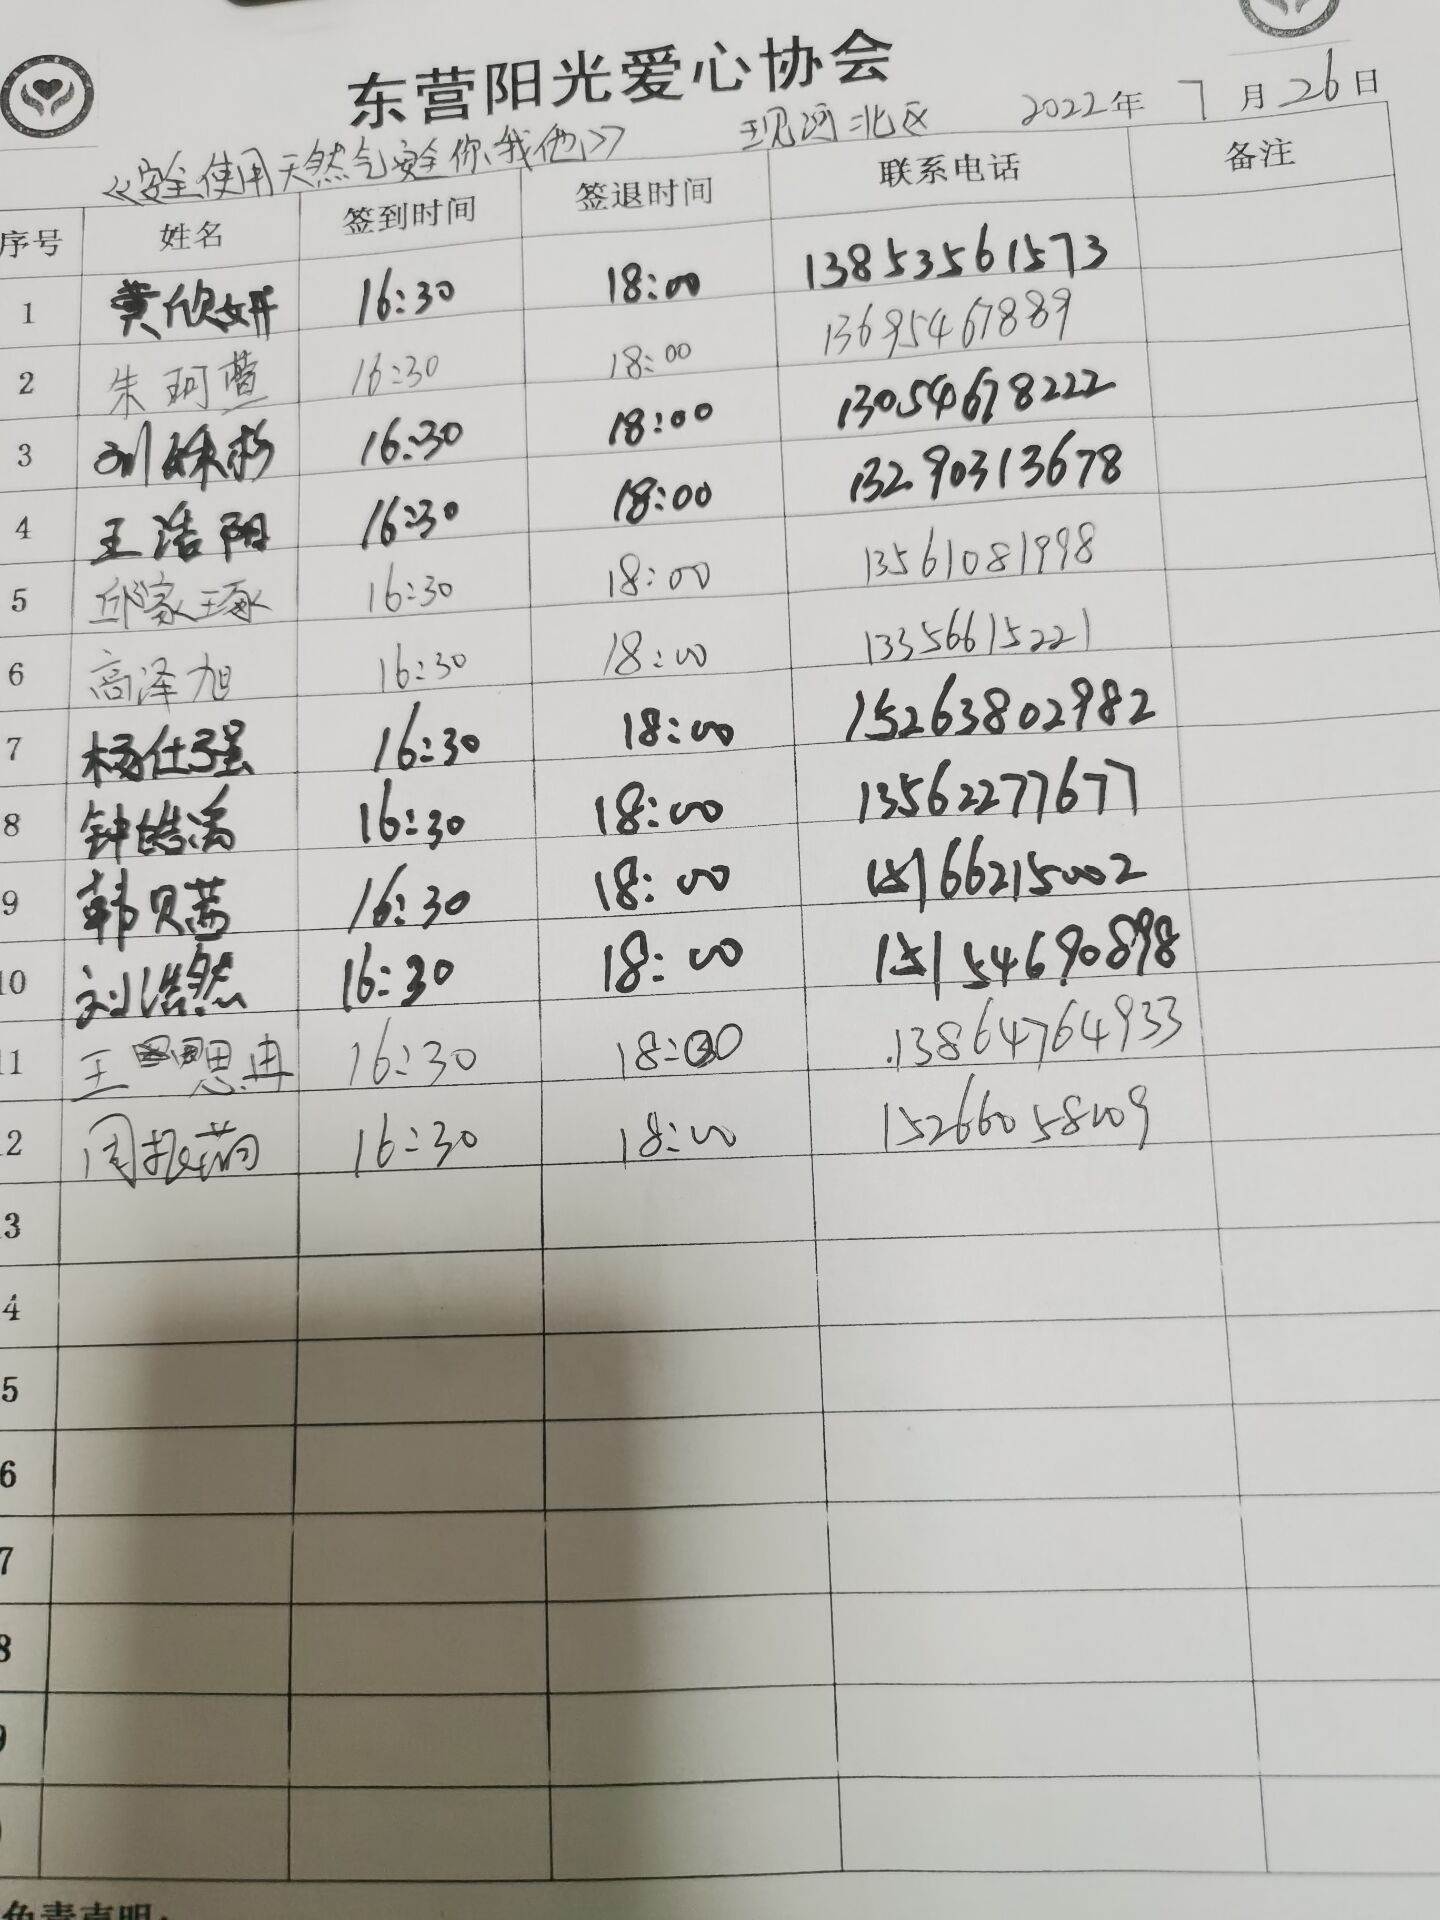 东营阳光爱心协会
《安全使用天然气安全你、我他》 现河北区 2022年 7月26日
序号 姓名 签到时间 签退时间 联系电话 备注
1 黄欣妍 16:30 18:00 13853561573
2 朱珂萱 16:30 18:00 13695467889
3 刘 16:30 18:00 13054678222
4 王浩阳 16:30 18:00 13290313678
5 邱家琢 16:30 18:00 13561081998
6 高泽旭 16:30 18:00 13356615221
7 杨仕强 16:30 18:00 15263802982
8 钟皓禹 16:30 18:00 13562277677
9 韩贝茜 16:30 18:00 15166215002
10 刘浩然 16:30 18:00 15154690898
11 王思冉 16:30 18:00 13864764933
12 周振 16:30 18:00 15266058009
3
4
5
6
7
8
9
免责声明: